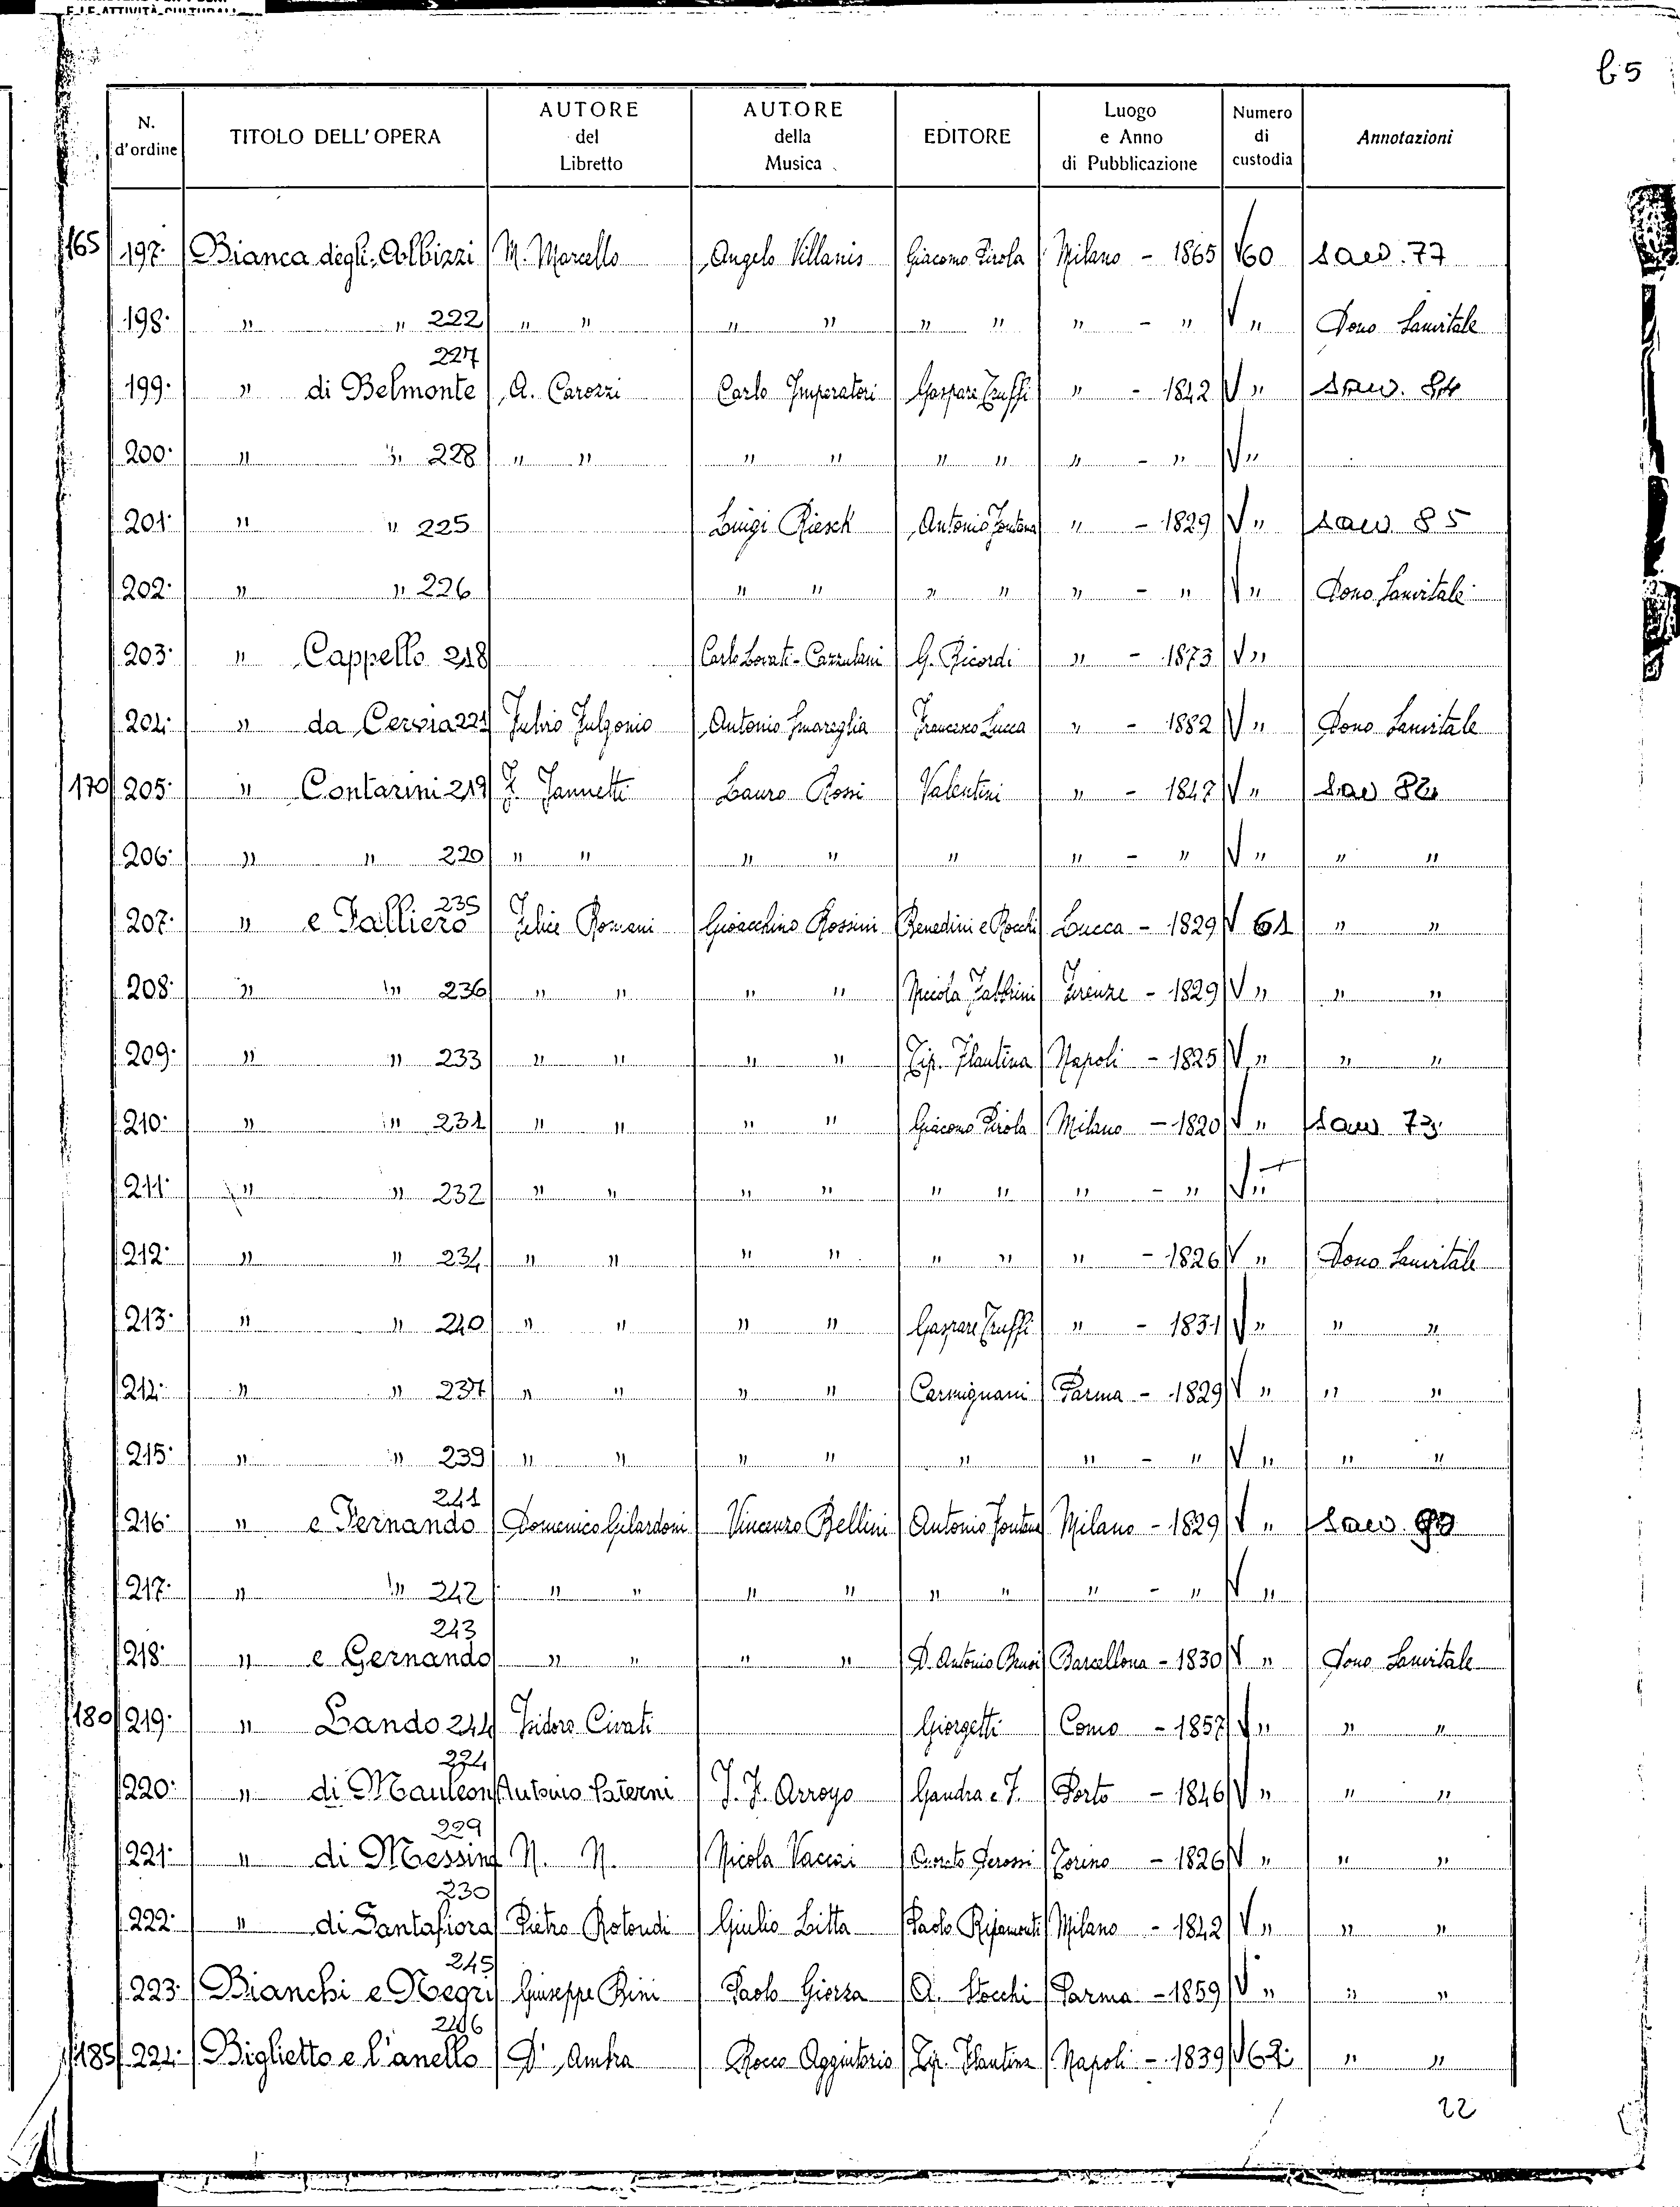 E LE ATTIVITÀ CULTURALI
65
N. d'ordine TITOLO DELL'OPERA AUTORE del Libretto AUTORE della Musica EDITORE Luogo e Anno di Pubblicazione Numero di custodia Annotazioni
165 197· Bianca degli Albizzi M. Marcello Angelo Villanis Giacomo Pirola Milano - 1865 V 60 saw. 77
198· " " 222 " " " " " " " - " V " Dono Sanvitale
227
199· " di Belmonte A. Carozzi Carlo Imperatori Gaspare Truffi " - 1842 V " saw. 84
200· " " 228 " " " " " " " - " V "
201· " " 225 Luigi Rieschi Antonio Fontana " - 1829 V " saw 85
202· " " 226 " " " " " - " V " Dono Sanvitale
203· " Cappello 218 Carlo Lovati-Cazzulani G. Ricordi " - 1873 V "
204· " da Cervia 221 Fulvio Fulgonio Antonio Smareglia Francesco Lucca " - 1882 V " Dono Sanvitale
170 205· " Contarini 219 F. Jannetti Lauro Rossi Valentini " - 1847 V " saw 82
206· " " 220 " " " " " " - " V " " "
235
207· " e Falliero Felice Romani Gioacchino Rossini Benedini e Rocchi Lucca - 1829 V 61 " "
208· " " 236 " " " " Niccola Fabbrini Firenze - 1829 V " " "
209· " " 233 " " " " Tip. Flautina Napoli - 1825 V " " "
210· " " 231 " " " " Giacomo Pirola Milano - 1820 V " saw 73
211· " " 232 " " " " " " " - " V "
212· " " 234 " " " " " " " - 1826 V " Dono Sanvitale
213· " " 240 " " " " Gaspare Truffi " - 1831 V " " "
214· " " 237 " " " " Carmignani Parma - 1829 V " " "
215· " " 239 " " " " " " - " V " " "
241
216· " e Fernando Domenico Gilardoni Vincenzo Bellini Antonio Fontana Milano - 1829 V " saw. 90
217· " " 242 " " " " " " " - " V "
243
218· " e Gernando " " " " D. Antonio Brusi Barcellona - 1830 V " Dono Sanvitale
180 219· " Lando 244 Isidoro Civati Giorgetti Como - 1857 V " " "
224
220· " di Mauleon Antonio Paterni J. F. Arroyo Gandra e F. Porto - 1846 V " " "
229
221· " di Messina N. N. Nicola Vaccai Derossi Torino - 1826 V " " "
230
222· " di Santafiora Pietro Rotondi Giulio Litta Paolo Ripamonti Milano - 1842 V " " "
245
223· Bianchi e Negri Giuseppe Rini Paolo Giorza A. Stocchi Parma - 1859 V " " "
246
185 224· Biglietto e l'anello D' Ambra Rocco Aggiutorio Tip. Flautina Napoli - 1839 V 62 " "
22